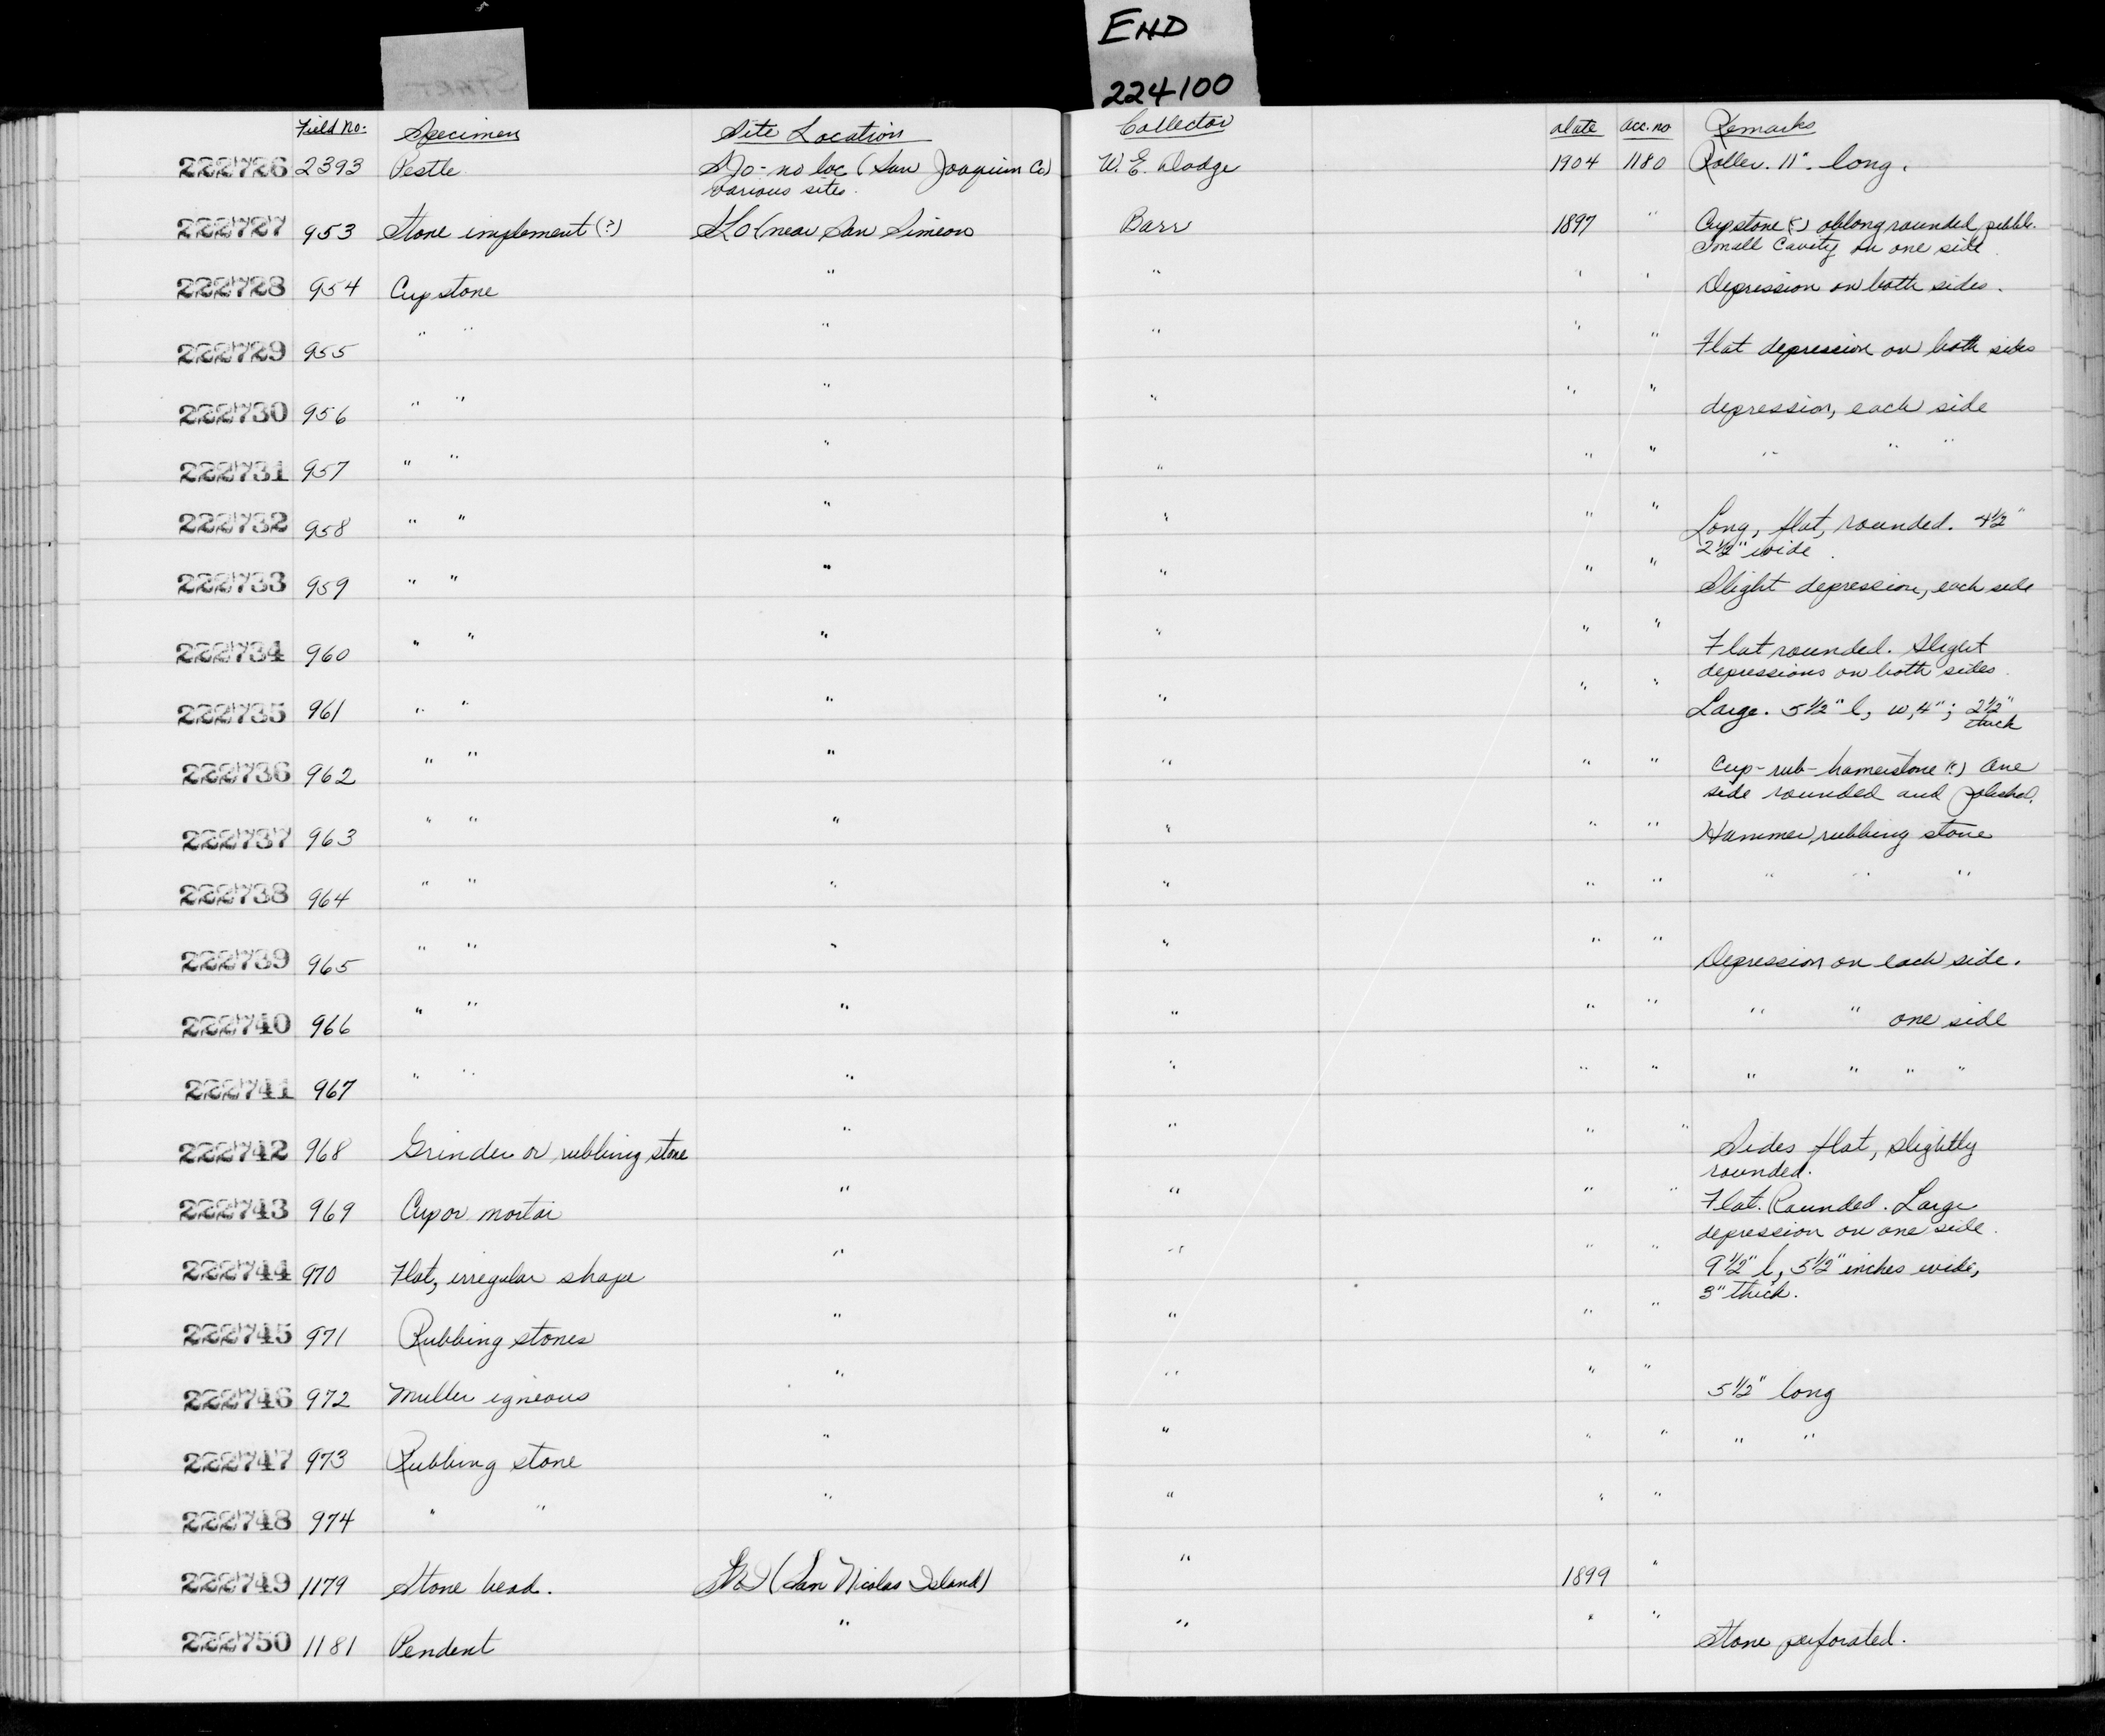 START
END
224100
Field No: Specimen Site Location Collector Date Acc. no Remarks
222726 2393 Pestle SJo - no loc (San Joaquin Co) W. E. Dodge 1904 1180 Roller. 11" long.
various sites.
222727 953 Stone implement (?) SLO (near San Simeon Barr 1897 " Cupstone (?) oblong rounded pebble.
Small Cavity on one side
222728 954 Cup stone " " " " Depression on both sides.
222729 955 " " " " " " Flat depression on both sides
222730 956 " " " " " " depression, each side
222731 957 " " " " " " " " "
222732 958 " " " " " " Long, flat, rounded. 4 1/2"
2 1/2" wide.
222733 959 " " " " " " Slight depression, each side
222734 960 " " " " " " Flat rounded. Slight
depressions on both sides.
222735 961 " " " " " " Large. 5 1/2" l, w, 4"; 2 1/2"
thick
222736 962 " " " " " " Cup-rub-hamerstone (?) One
side rounded and polished.
222737 963 " " " " " " Hammer, rubbing stone
222738 964 " " " " " " " " "
222739 965 " " " " " " Depression on each side.
222740 966 " " " " " " " " one side
222741 967 " " " " " " " " " "
222742 968 Grinder or rubbing stone " " " " Sides flat, slightly
rounded.
222743 969 Cup or mortar " " " " Flat. Rounded. Large
depression on one side.
222744 970 Flat, irregular shape " " " " 9 1/2" l, 5 1/2" inches wide,
3" thick.
222745 971 Rubbing stones " " " "
222746 972 Muller igneous " " " " 5 1/2" long
222747 973 Rubbing stone " " " " " "
222748 974 " " " " " "
222749 1179 Stone bead. (San Nicolas Island) " 1899 "
222750 1181 Pendent " " " " Stone perforated.